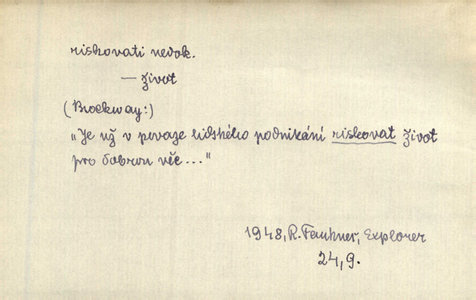 riskovati nedok.
— život
(Brockway:)
„Je už v povaze lidského podnikání riskovat život
pro dobrou věc..."
1948, R. Faukner, Explorer
24,9.